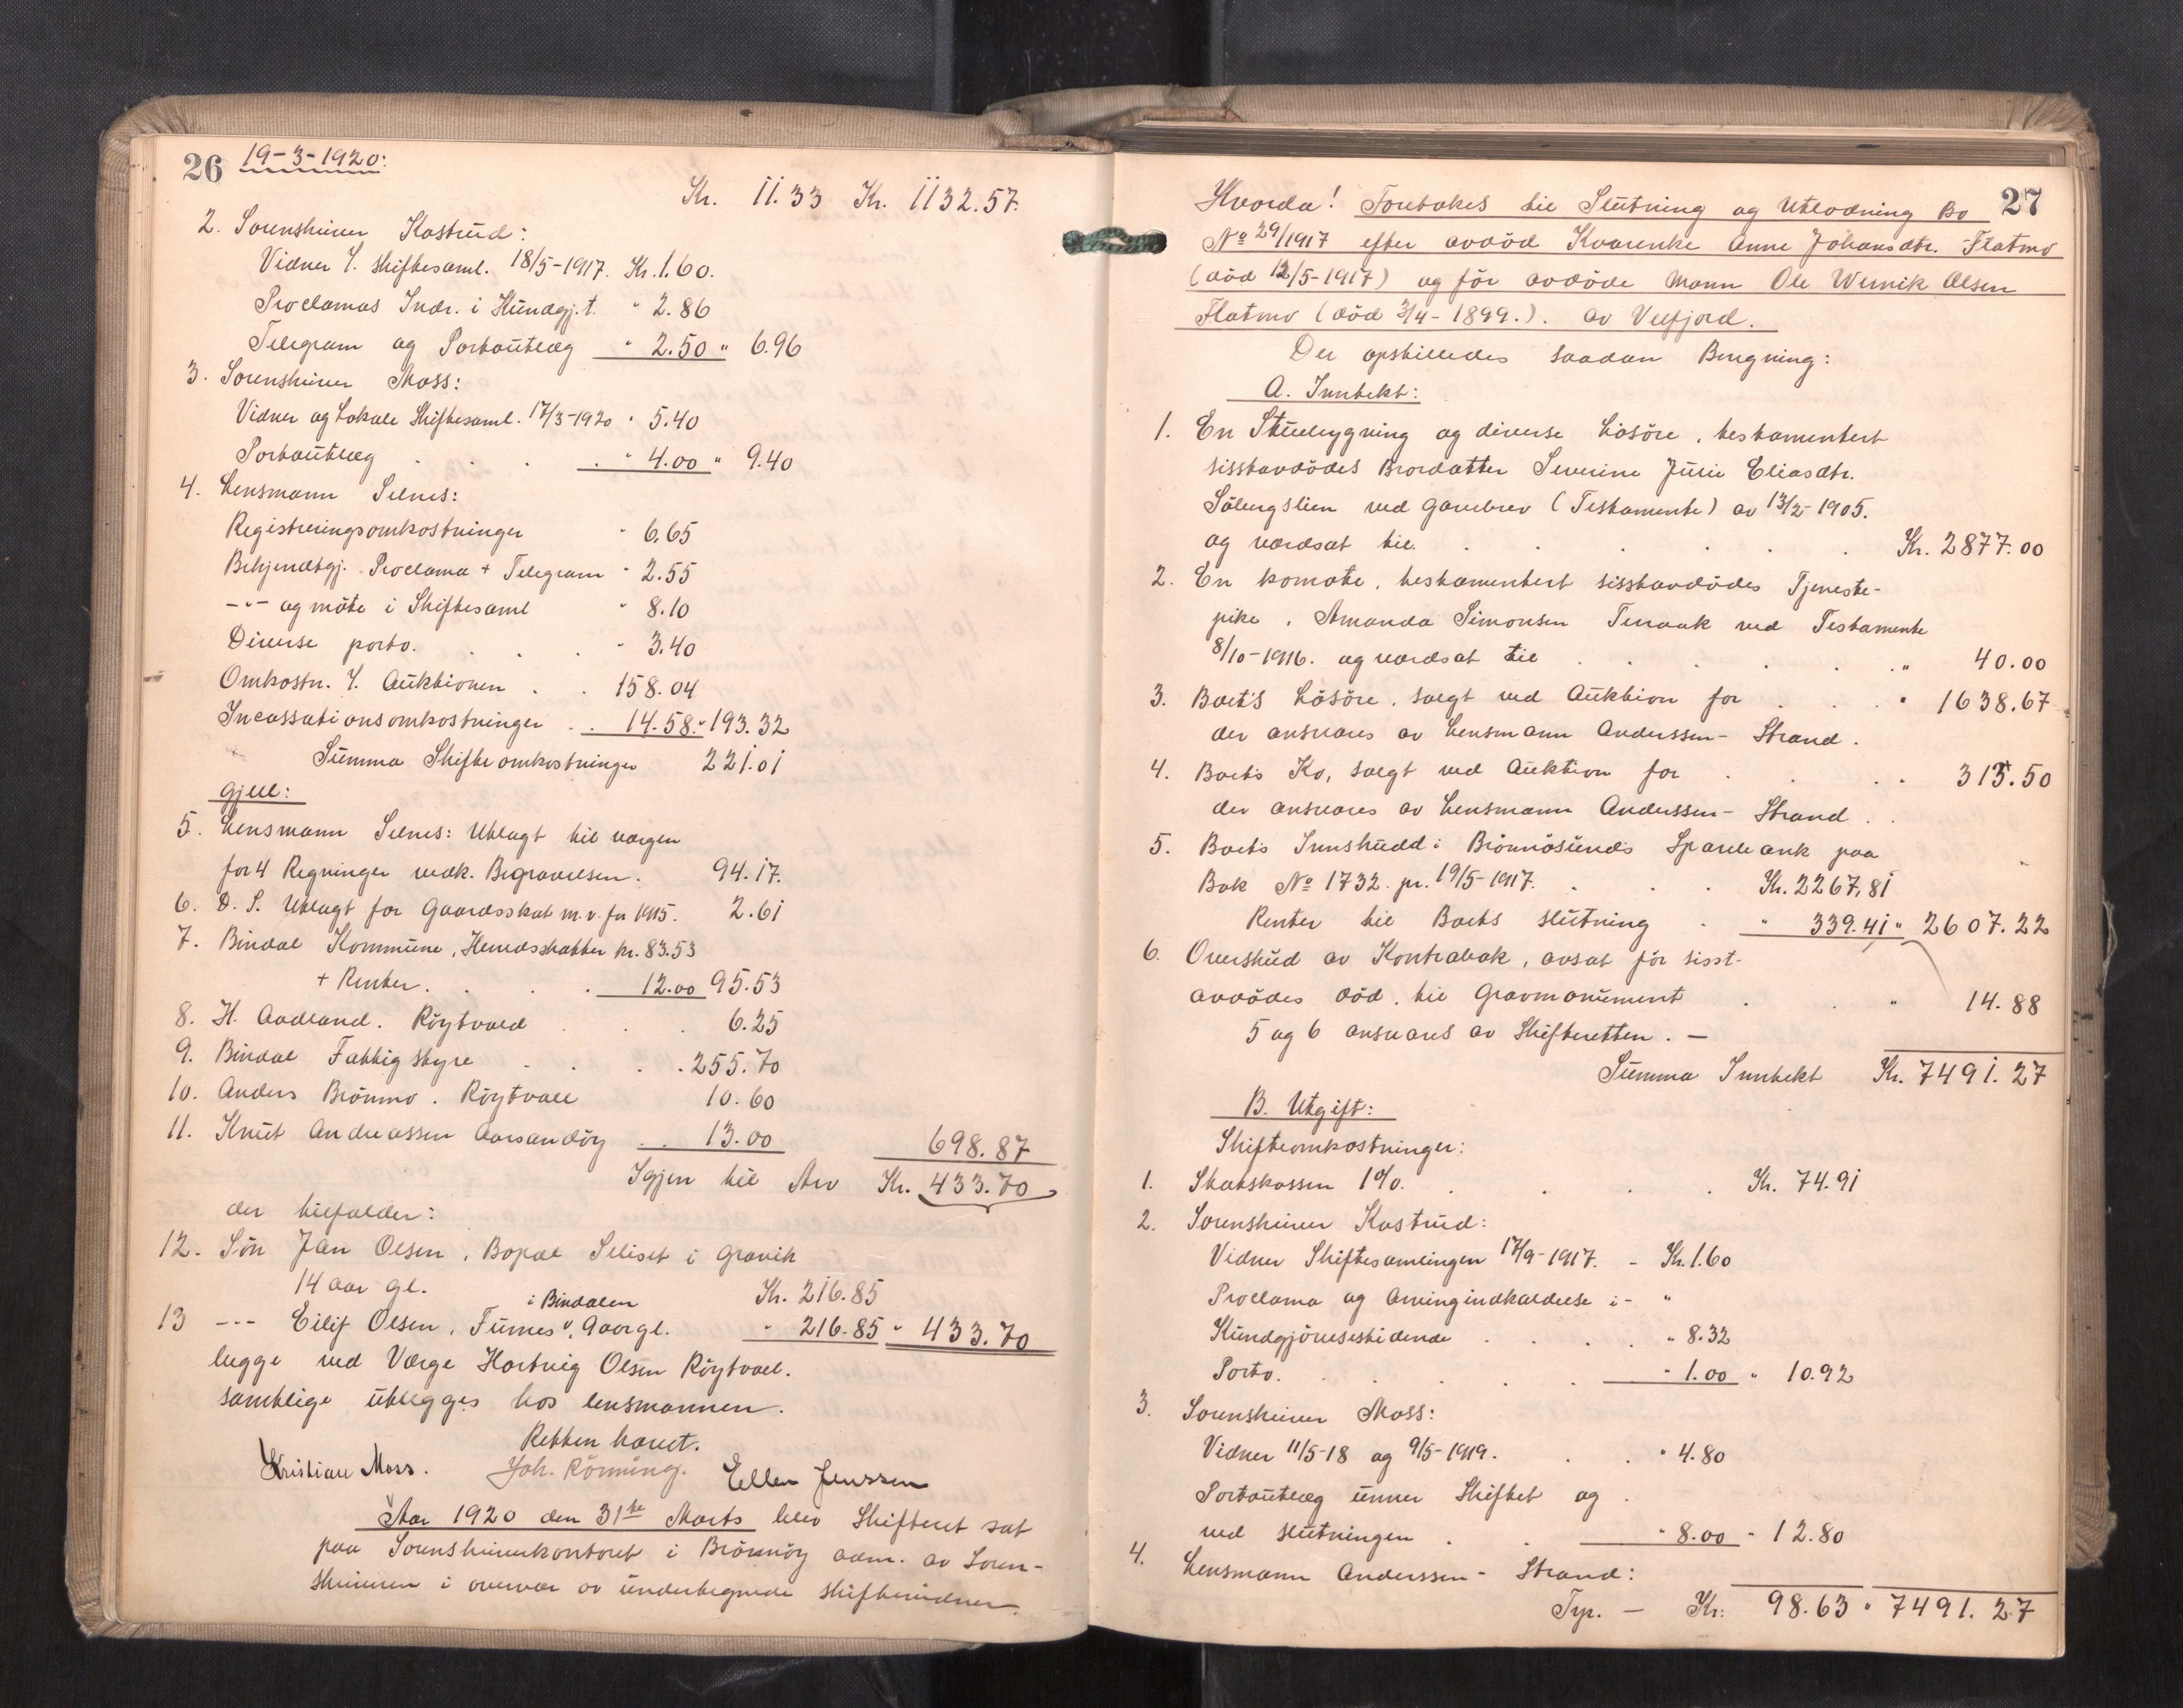 26 19-3-1920:
Kr. 11.33 Kr. 1132.57.
2. Sorenskriver Kastrud:
Vidner v. skiftesaml. 18/5-1917. Kr. 1.60.
Proclamas Indr. i Kundgj.t. " 2.86
Telegram og Portoutlæg " 2.50 " 6.96
3. Sorenskriver Moss:
Vidner og Lokale Skiftesaml. 17/3-1920 " 5.40
Portoutlæg . . . " 4.00 " 9.40
4. Lensmann Selnes:
Registreringsomkostninger " 6.65
Bekjendtgj. Proclama + Telegram " 2.55
-"- og möte i Skiftesaml " 8.10
Diverse porto. . . . " 3.40
Omkostn. v. Auktionen . . 158.04
Incassationsomkostninger . . 14.58 " 193.32
Summa Skifteomkostninger 221.01
Gjeld:
5. Lensmann Selnes: Utlagt til vergen
for 4 Regninger vedk. Begravelsen. 94.17.
6. D. S. Utlagt for Gaardsskat m.v. for 1915. 2.61
7. Bindal Kommune, Herredsskatter kr. 83.53
+ Renter. . . . 12.00 95.53
8. H. Aadland. Röytvold . . 6.25
9. Bindal Fattigstyre . . . 255.70
10. Anders Brönmo. Röytvoll 10.60
11. Knut Andreassen Aarsandöy . . 13.00 698.87
Igjen til Arv Kr. 433.70
der tilfalder:
12. Sön Jan Olsen, Bopæl Seliset i Gravik
14 aar gl. Kr. 216.85
i Bindalen
13 -"- Eilif Olsen, Fuines v, 9 aar gl. " 216.85 " 433.70
begge ved Værge Hartvig Olsen Röytvoll.
samtlige utlegges hos lensmannen.
Retten hævet.
Kristian Moss. Joh. Rönning. Ellen Jenssen
Aar 1920 den 31te Marts blev Skifteret sat
paa Sorenskriverkontoret i Brönnöy adm. av Soren-
skriveren i overvær av undertegnede skiftevidner.
27
Hvorda! Foretokes til Slutning og Utlodning Bo
No 29/1917 efter avdöd Kvarenke Anne Johansdtr. Flatmo
(död 12/5-1917) og för avdöde Mann Ole Wernik Olsen
Flatmo (död 3/4-1899.). av Velfjord.
Der opstilledes saadan Beregning:
A. Inntekt:
1. En Stuebygning og diverse Lösöre, testamentert
sisstavdödes Brordatter Severine Julie Eliasdtr.
Sölbergslien ved Gavebrev (Testamente) av 13/2-1905.
og værdsat til. . . . . . . Kr. 2877.00
2. En komode, testamentert sisstavdödes Tjeneste-
pike, Amanda Simonsen Terraak ved Testamente
8/10-1916. og værdsat til . . . . . " 40.00
3. Boets Lösöre, solgt ved Auktion for . . . " 1638.67
der ansvares av Lensmann Anderssen-Strand.
4. Boets Ko, solgt ved Auktion for . . . . 313.50
der ansvares av Lensmann Anderssen-Strand . .
5. Boets Innskudd i Brönnösunds Sparebank paa
Bok No 1732. pr. 19/5-1917. . . . Kr. 2267,81
Renter til Boets slutning . " 339.41 " 2607.22
6. Overskud av Kontrabok, avsat för sisst-
avdödes död, til Gravmonument . . " 14.88
5 og 6 ansvares av Skifteretten. —
Summa Inntekt Kr. 7491.27
B. Utgift:
Skifteomkostninger:
1. Statskassen 1%. . . . . Kr. 74.91
2. Sorenskriver Kastrud:
Vidner Skiftesamlingen 17/9-1917. - Kr. 1.60
Proclama og Arvingindkaldelse i - "
Kundgjörelsestidende . . . . " 8.32
Porto. . . . . . " 1.00 " 10.92
3. Sorenskriver Moss:
Vidner 11/5-18 og 9/5-1919. . . " 4.80
Portoutlæg unner Skiftet og .
ved slutningen . . " 8.00 " 12.80
4. Lensmann Anderssen-Strand:
Trp. — Kr: 98.63 " 7491.27